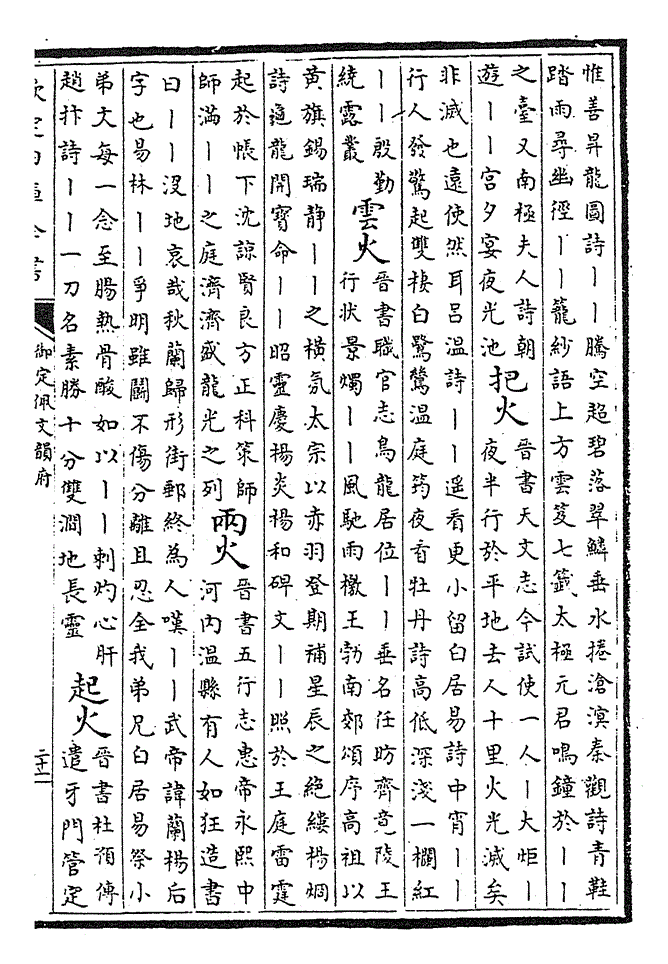 惟善昇龍圖詩丨丨騰空超碧落翠鱗垂水捲滄溟秦觀詩青鞋
踏雨尋幽徑丨丨籠紗語上方雲笈七籤太極元君鳴鐘於丨丨
之臺又南極夫人詩朝
遊丨丨宮夕宴夜光池
把火
晉書天文志今試使一人丨大炬丨
夜半行於平地去人十里火光滅矣
非滅也遠使然耳呂溫詩丨丨遥看更小留白居易詩中宵丨丨
行人發驚起雙棲白鷺鷥溫庭筠夜看牡丹詩高低深淺一欄紅
丨丨殷勤
繞露叢
雲火
晉書職官志鳥龍居位丨丨垂名任昉齊竟陵王
行狀景燭丨丨風馳雨檄王勃南郊頌序高祖以
黃旗錫瑞靜丨丨之横氛太宗以赤羽登期補星辰之絕縷楊烱
詩迺龍開寶命丨丨昭靈慶楊炎楊和碑文丨丨照於王庭雷霆
起於帳下沈諒賢良方正科策師
師滿丨丨之庭濟濟盛龍光之列
兩火
晉書五行志惠帝永熙中
河内溫縣有人如狂造書
曰丨丨没地哀哉秋蘭歸形街郵終為人嘆丨丨武帝諱蘭楊后
字也易林丨丨爭明雖鬭不傷分離且忍全我弟兄白居易祭小
弟文每一念至腸熱骨酸如以丨丨刺灼心肝
趙抃詩丨丨一刀名素勝十分雙澗地長靈
起火
晉書杜預傳
遣牙門管定
欽定四庫全書
御定佩文韻府